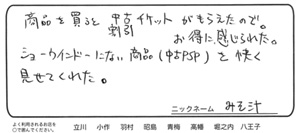 商品を買うと中古割引チケットがもらえたので。
お得に感じられた。
ショーウインドーにない商品(中古PSP)を快く
見せてくれた。
ニックネーム みそ汁
よく利用されるお店を○で囲んでください。 立川 小作 羽村 昭島 青梅 高幡 堀之内 八王子